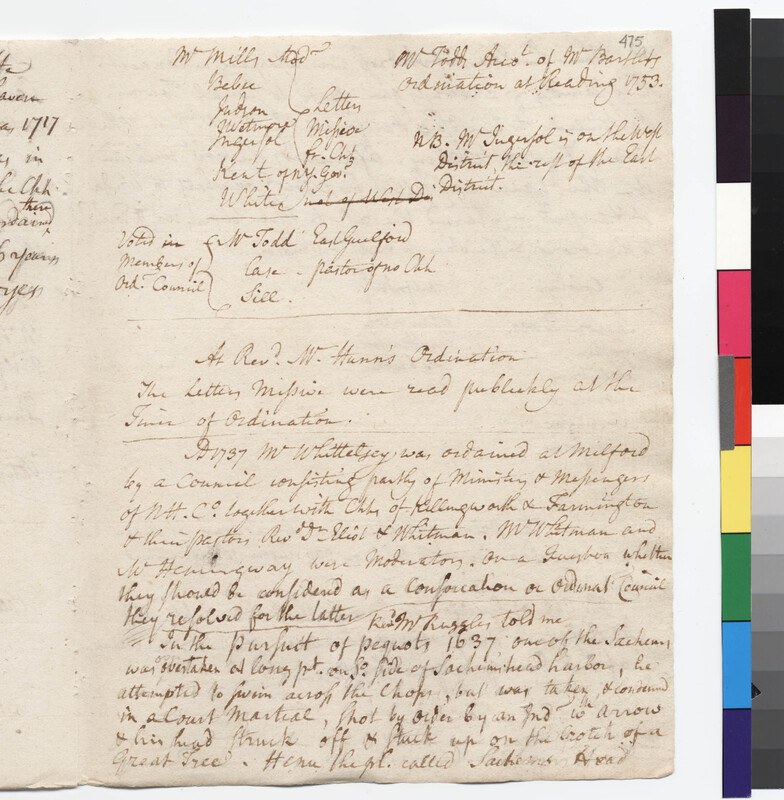 475
Mr Mills Modr
Bebee
Judson
Wetmore
Ingersol
Letters
Missive
fr. Chh
Kent of N.Y. Govt
White
Mr Todds Acct. of Mr Bartlets
Ordination at Reading 1753.
NB. Mr Ingersol is on the West
District, the rest of the East
District.
Voted in
Members of
Ordn Council
Mr Todd East Guilford
Case - pastor of no Chh
Sill.
At Revd. Mr Hunn's Ordination
The Letters Missive were read publickly at the
Time of Ordination.
A 1737 Mr Whittelsey was ordained at Milford
by a Council consisting partly of Ministers & Messengers
of NH. Co. together with Chhs of Killingworth & Farmington
& their pastors Revd Dr Eliot & Whitman. Mr Whitman and
Mr Hemingway were Moderators. On a Question whether
they should be considered as a Consociation or Ordinat Council
they resolved for the latter Revd Mr Ruggles told me
In the pursuit of pequots 1637 one of the Sachems
was overtaken at long pt. on So. side of Sachemshead harbor, he
attempted to swim across the Chops, but was taken, & condemd
in a Court Martial, shot by order by an Ind wth arrow
& his head struck off & stuck up on the Crotch of a
Great Tree. Hence the pl. called Sachems Head
1717
as in